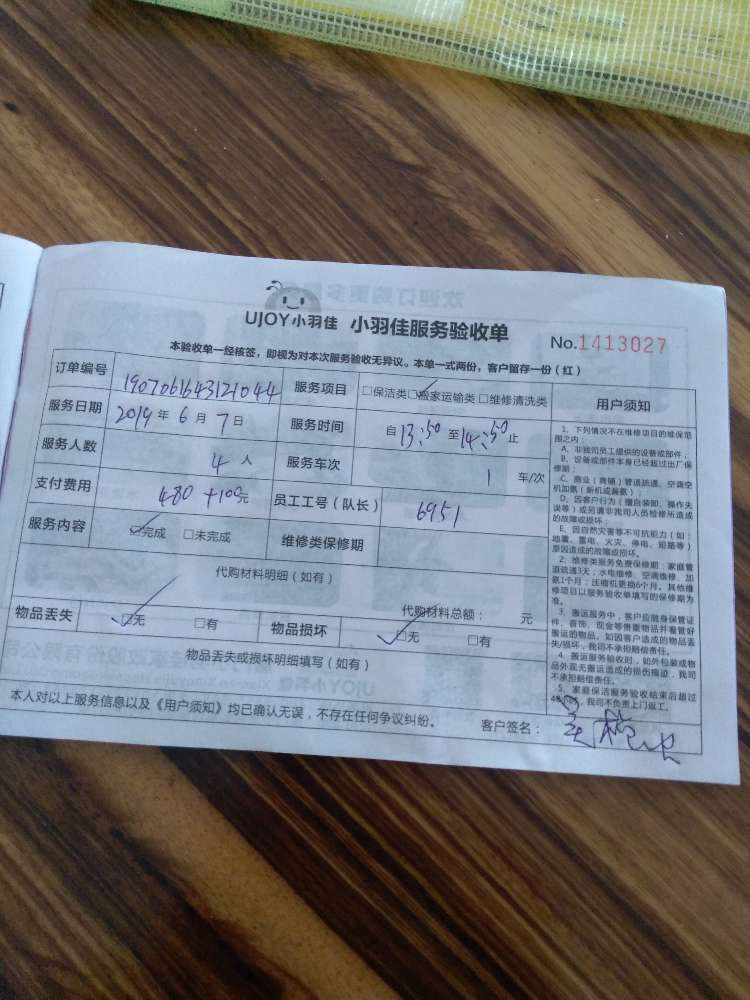 UJOY小羽佳 小羽佳服务验收单
No.1413027
本验收单一经核签，即视为对本次服务验收无异议。本单一式两份，客户留存一份（红）
订单编号 1907061643121044 服务项目 □保洁类□搬家运输类□维修清洗类 用户须知
服务日期 2019年6月7日 服务时间 自13:50至14:50止
服务人数 4人 服务车次 1 车/次
支付费用 480+100元 员工工号（队长） 6951
服务内容 □完成 □未完成 维修类保修期
代购材料明细（如有）
代购材料总额： 元
物品丢失 □无 □有 物品损坏 □无 □有
物品丢失或损坏明细填写（如有）
1、下列情况不在维修项目的维保范
围之内：
A、非我司员工提供的设备或部件；
B、设备或部件本身已经超过出厂保
修期；
C、商业（商铺）管道疏通、空调空
机加氨（新机或漏氨）；
D、因客户行为（擅自装卸、操作失
误等）或另请非我司人员检修所造成
的故障或损坏；
E、因自然灾害等不可抗能力（如：
地震、雷电、火灾、停电、短路等）
原因造成的故障或损坏。
2、维修类服务免费保修期：家庭管
道疏通3天；水电维修、空调维修、加
氨1个月；压缩机更换6个月。其他维
修项目以服务验收单填写的保修期为
准。
3、搬运服务中，客户应随身保管证
件、首饰、现金等贵重物品并看管好
搬运的物品。如因客户造成的物品丢
失/损坏，我司不承担赔偿责任。
4、搬运服务验收时，如外包装或物
品外观无搬运造成的损伤痕迹，我司
不承担赔偿责任。
5、家庭保洁服务验收结束后超过
我司不负责上门返工。
本人对以上服务信息以及《用户须知》均已确认无误，不存在任何争议纠纷。 客户签名：